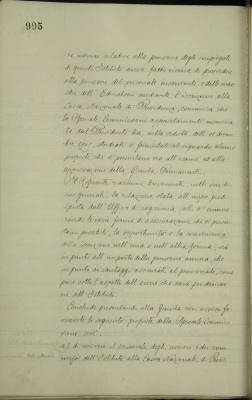 995
le norme relative alla pensione degli impiegati
di questo Istituto aveva fatto riserva di provvedere
alla pensione del personale inserviente e delle mae
stre dell' Educatorio mediante l'iscrizione alla
Cassa Nazionale di Previdenza, comunica che
la Speciale Commissione appositamente nomina
ta dal Presidente ha, nella seduta dell' 11 dicem
bre, studiato e formulato al riguardo alcune
proposte che si presentano ora all' esame ed alla
approvazione della Giunta Permanente.
Il Referente riassume brevemente, nelle sue li
nee generali, la relazione stata all' uopo pred
isposta dall' Ufficio di segreteria, ed
le varie forme di assicurazione che si presen
tano possibili, la opportunità e la convenienza
della iscrizione nell' una o nell' altra forma, sia
in punto all' importo della pensione annua, che
in punto ai vantaggi assicurati al personale, come
pure sotto l'aspetto dell' onere che sarà per derivar
ne all' Istituto.
Conclude presentando alla Giunta con avviso fa
vorevole le seguenti proposte della Speciale Commis
sione, cioè:
a) di iscrivere il personale degli uscieri e dei com
messi dell' Istituto alla Cassa Nazionale di Prev